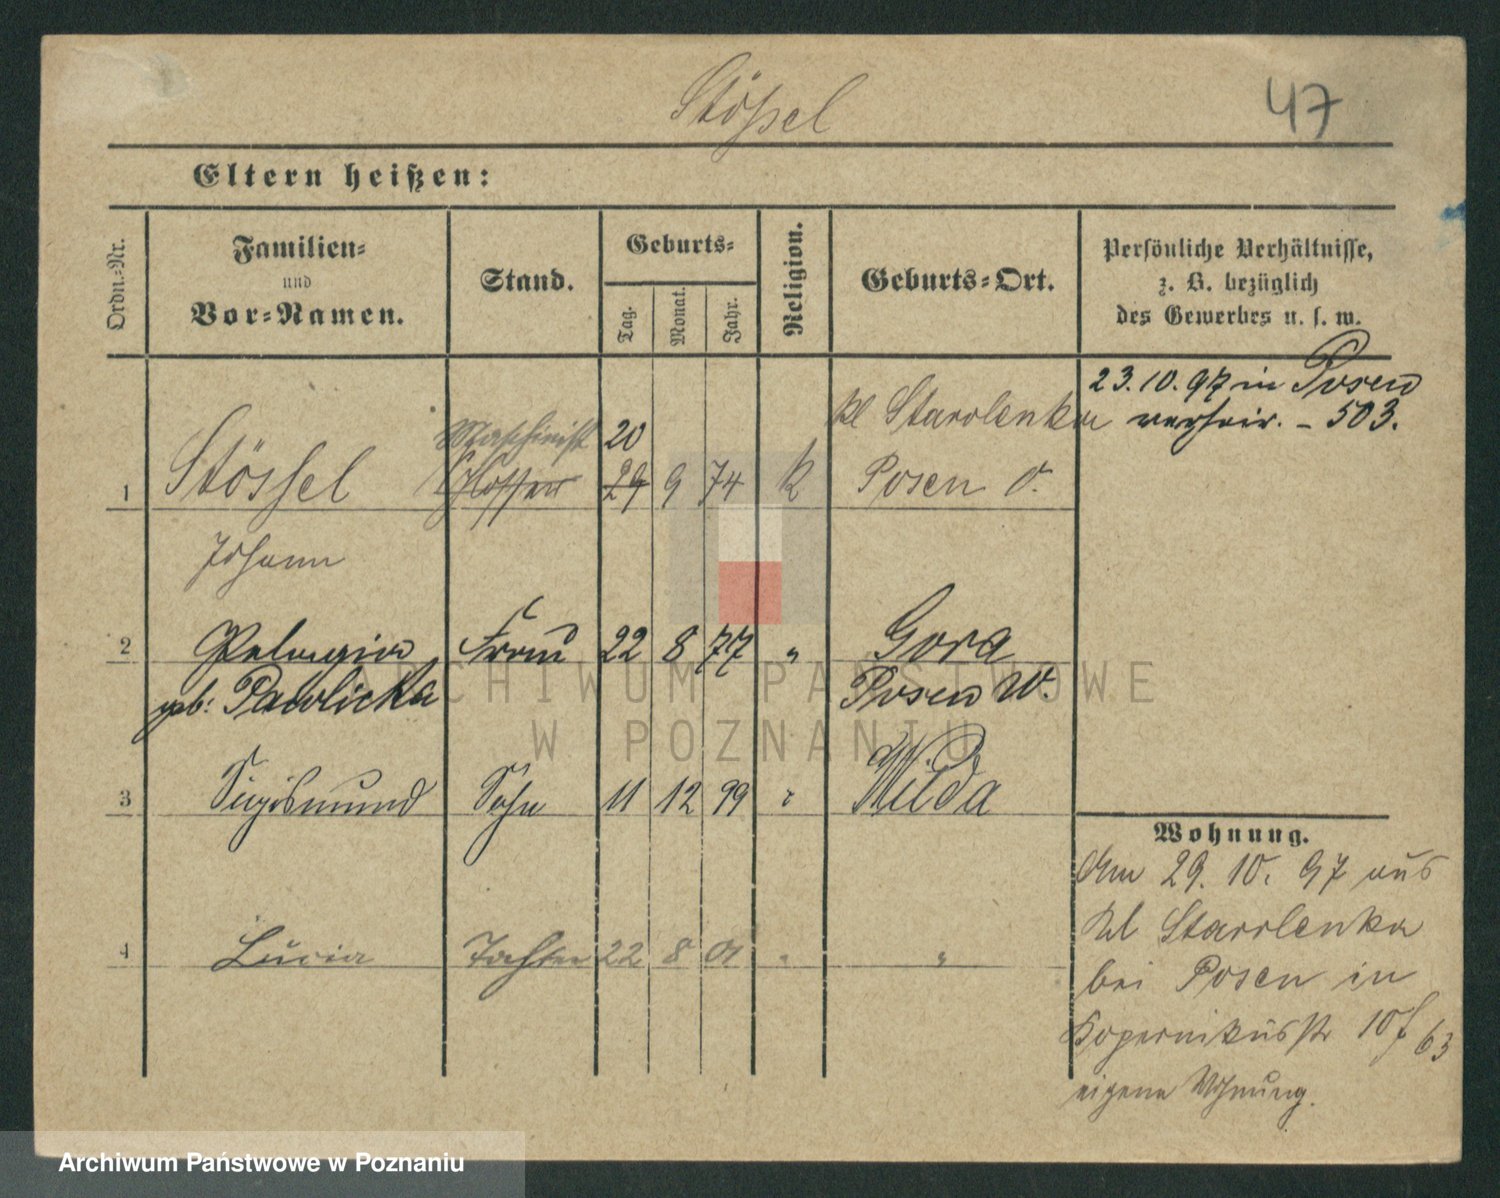 Stößel
47
Eltern heißen:
Ordn.-Nr.
Familien-
und
Vor-Namen.
Stand.
Geburts-
Tag.
Monat.
Jahr.
Religion.
Geburts-Ort.
Persönliche Verhältnisse,
z. B. bezüglich
des Gewerbes u. s. w.
23.10.97 in Posen
verheir. - 503.
Maschinist 20 Kl Starolenka
1 Stössel Schlosser 29 9 74 K Posen O.
Johann
2 Pelagia Frau 22 8 77 " Gora
geb: Pawlicka Posen W.
3 Sigismund Sohn 11 12 99 " Wilda
4 Lucia Tochter 22 8 01 " "
Wohnung.
Am 29. 10. 97 aus
Kl Starolenka
bei Posen in
Kopernikusstr 10 f 63
eigene Wohnung.
ARCHIWUM PAŃSTWOWE
W POZNANIU
Archiwum Państwowe w Poznaniu